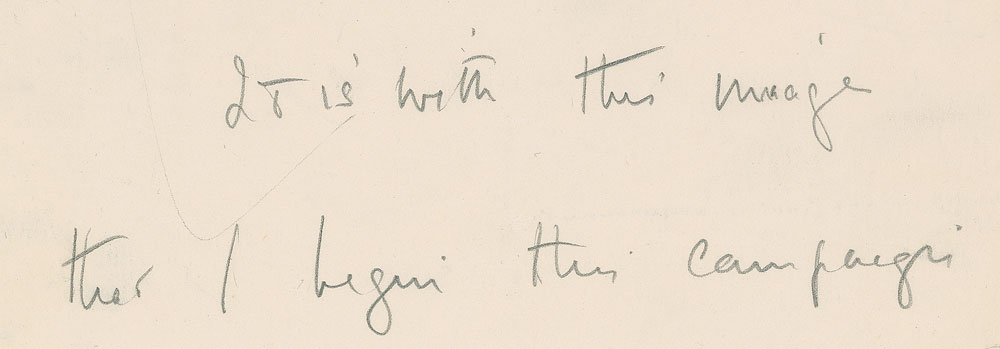 It is with this image
that I begin this campaign